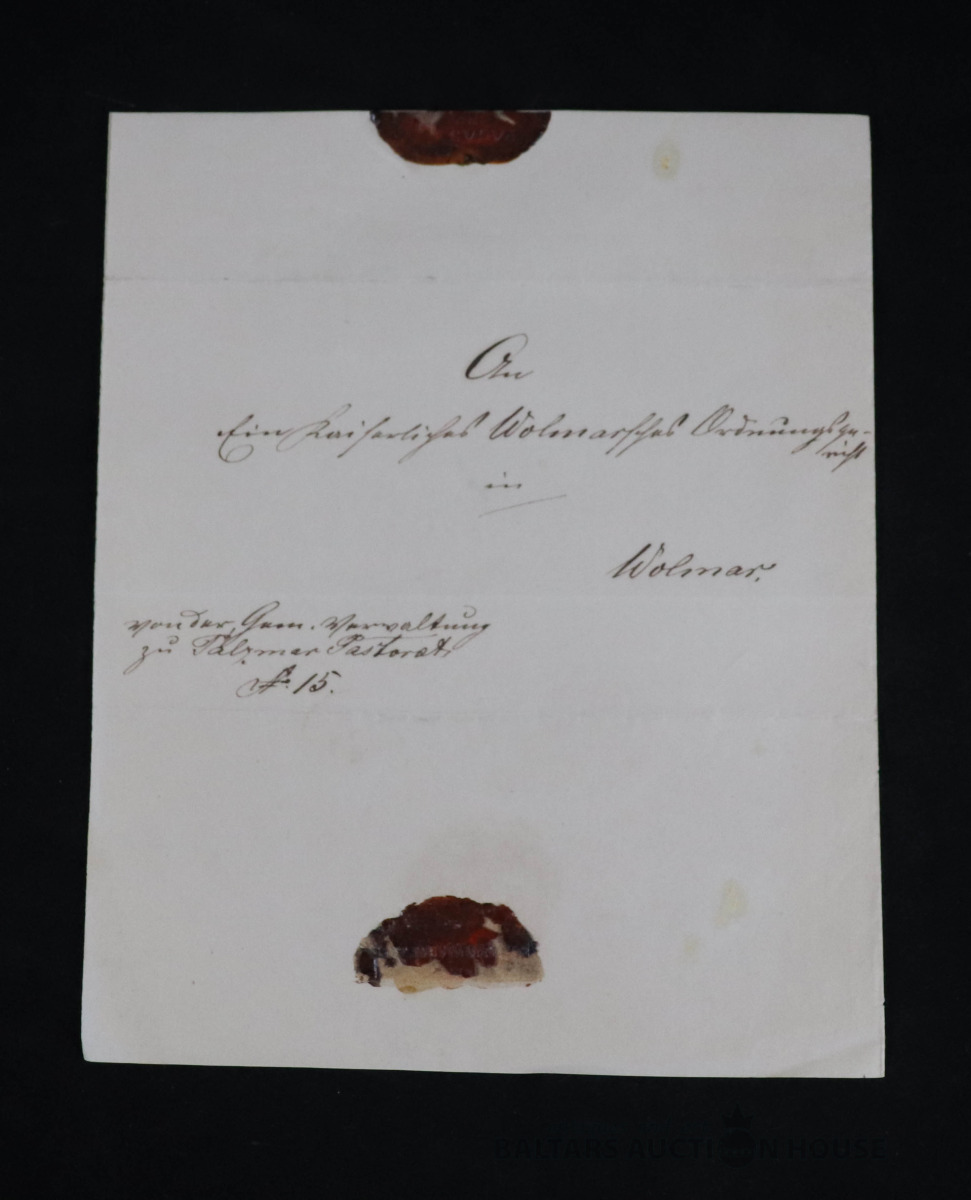 An
Ein Kaiserliches Wolmarsches Ordnungsge-
richt
in
Wolmar.
von der Gem. Verwaltung
zu Palzmar Pastorat
№ 15.
BALTARS AUCTION HOUSE